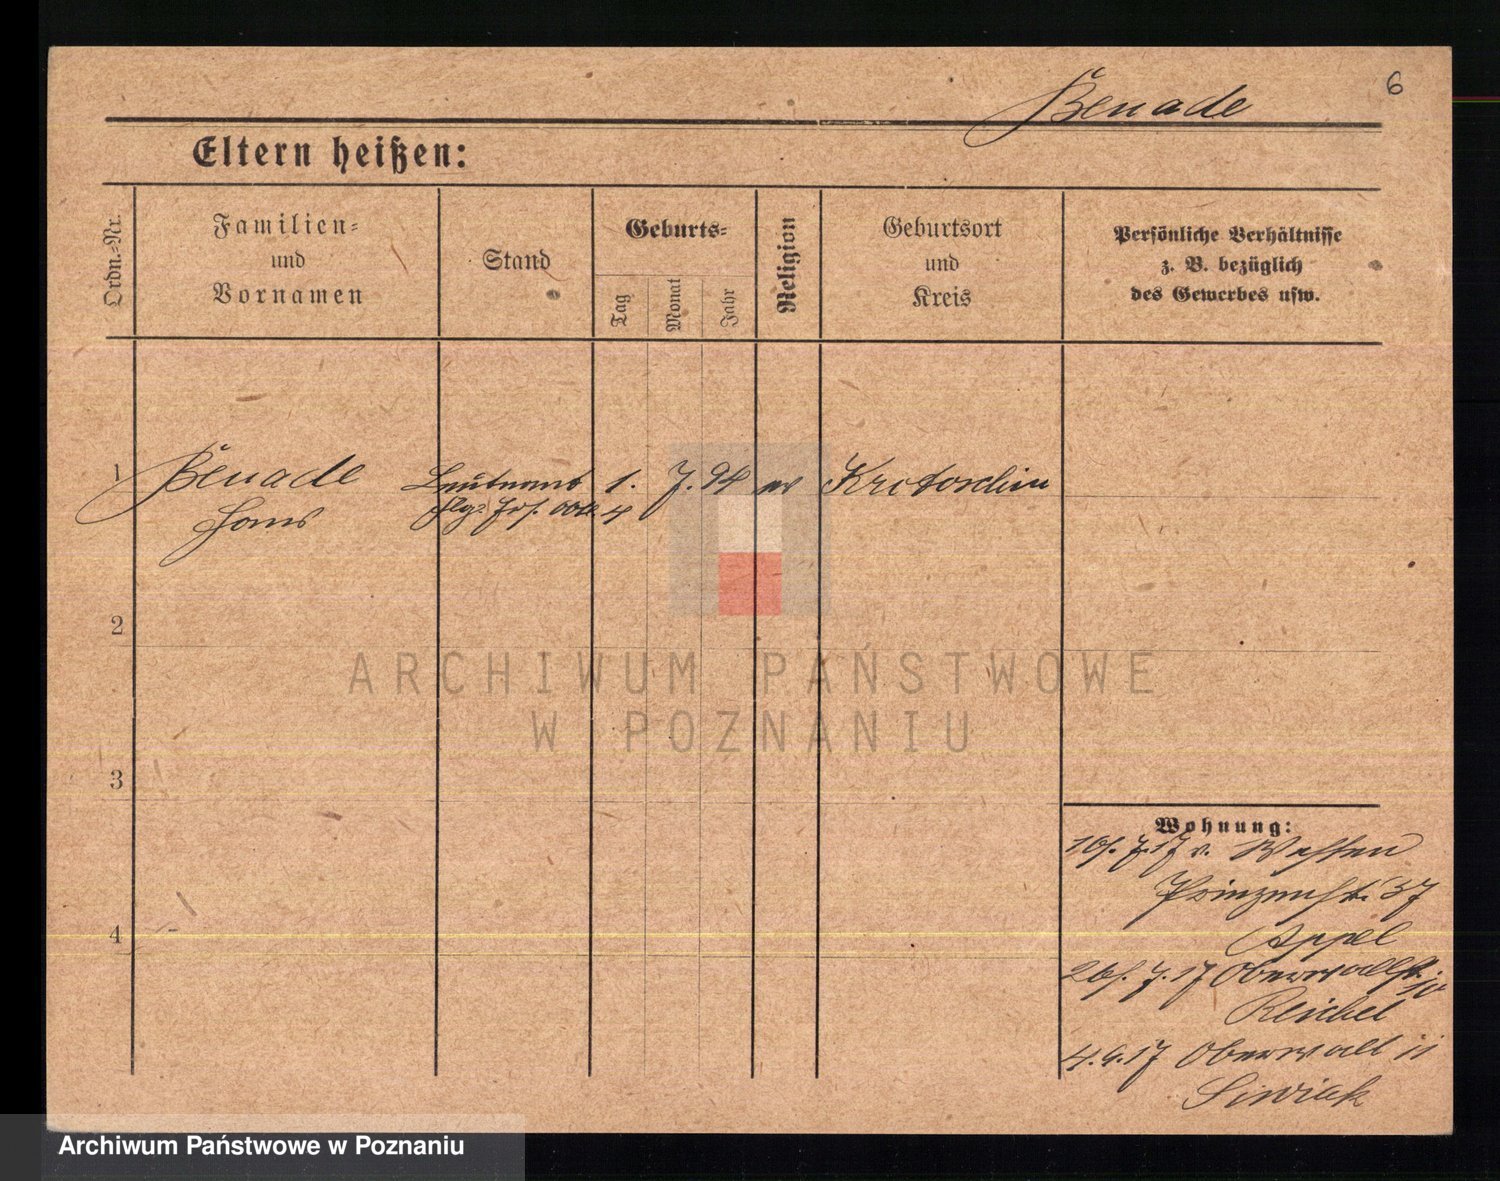 6
Benade
Eltern heißen:
Ordn.-Nr.
Familien-
und
Vornamen
Stand
Geburts-
Tag
Monat
Jahr
Religion
Geburtsort
und
Kreis
Persönliche Verhältnisse
z. B. bezüglich
des Gewerbes usw.
1 Benade Leutnant 1. 7. 94 ev Krotoschin
Hans
2
3
4
Wohnung:
16/. 7. 17 v. Westen
Prinzenstr. 37
Appel
26/. 7. 17 Oberwallstr.
Reichel
4. 9. 17 Oberwall 11
Siwiak
ARCHIWUM PAŃSTWOWE
W POZNANIU
Archiwum Państwowe w Poznaniu